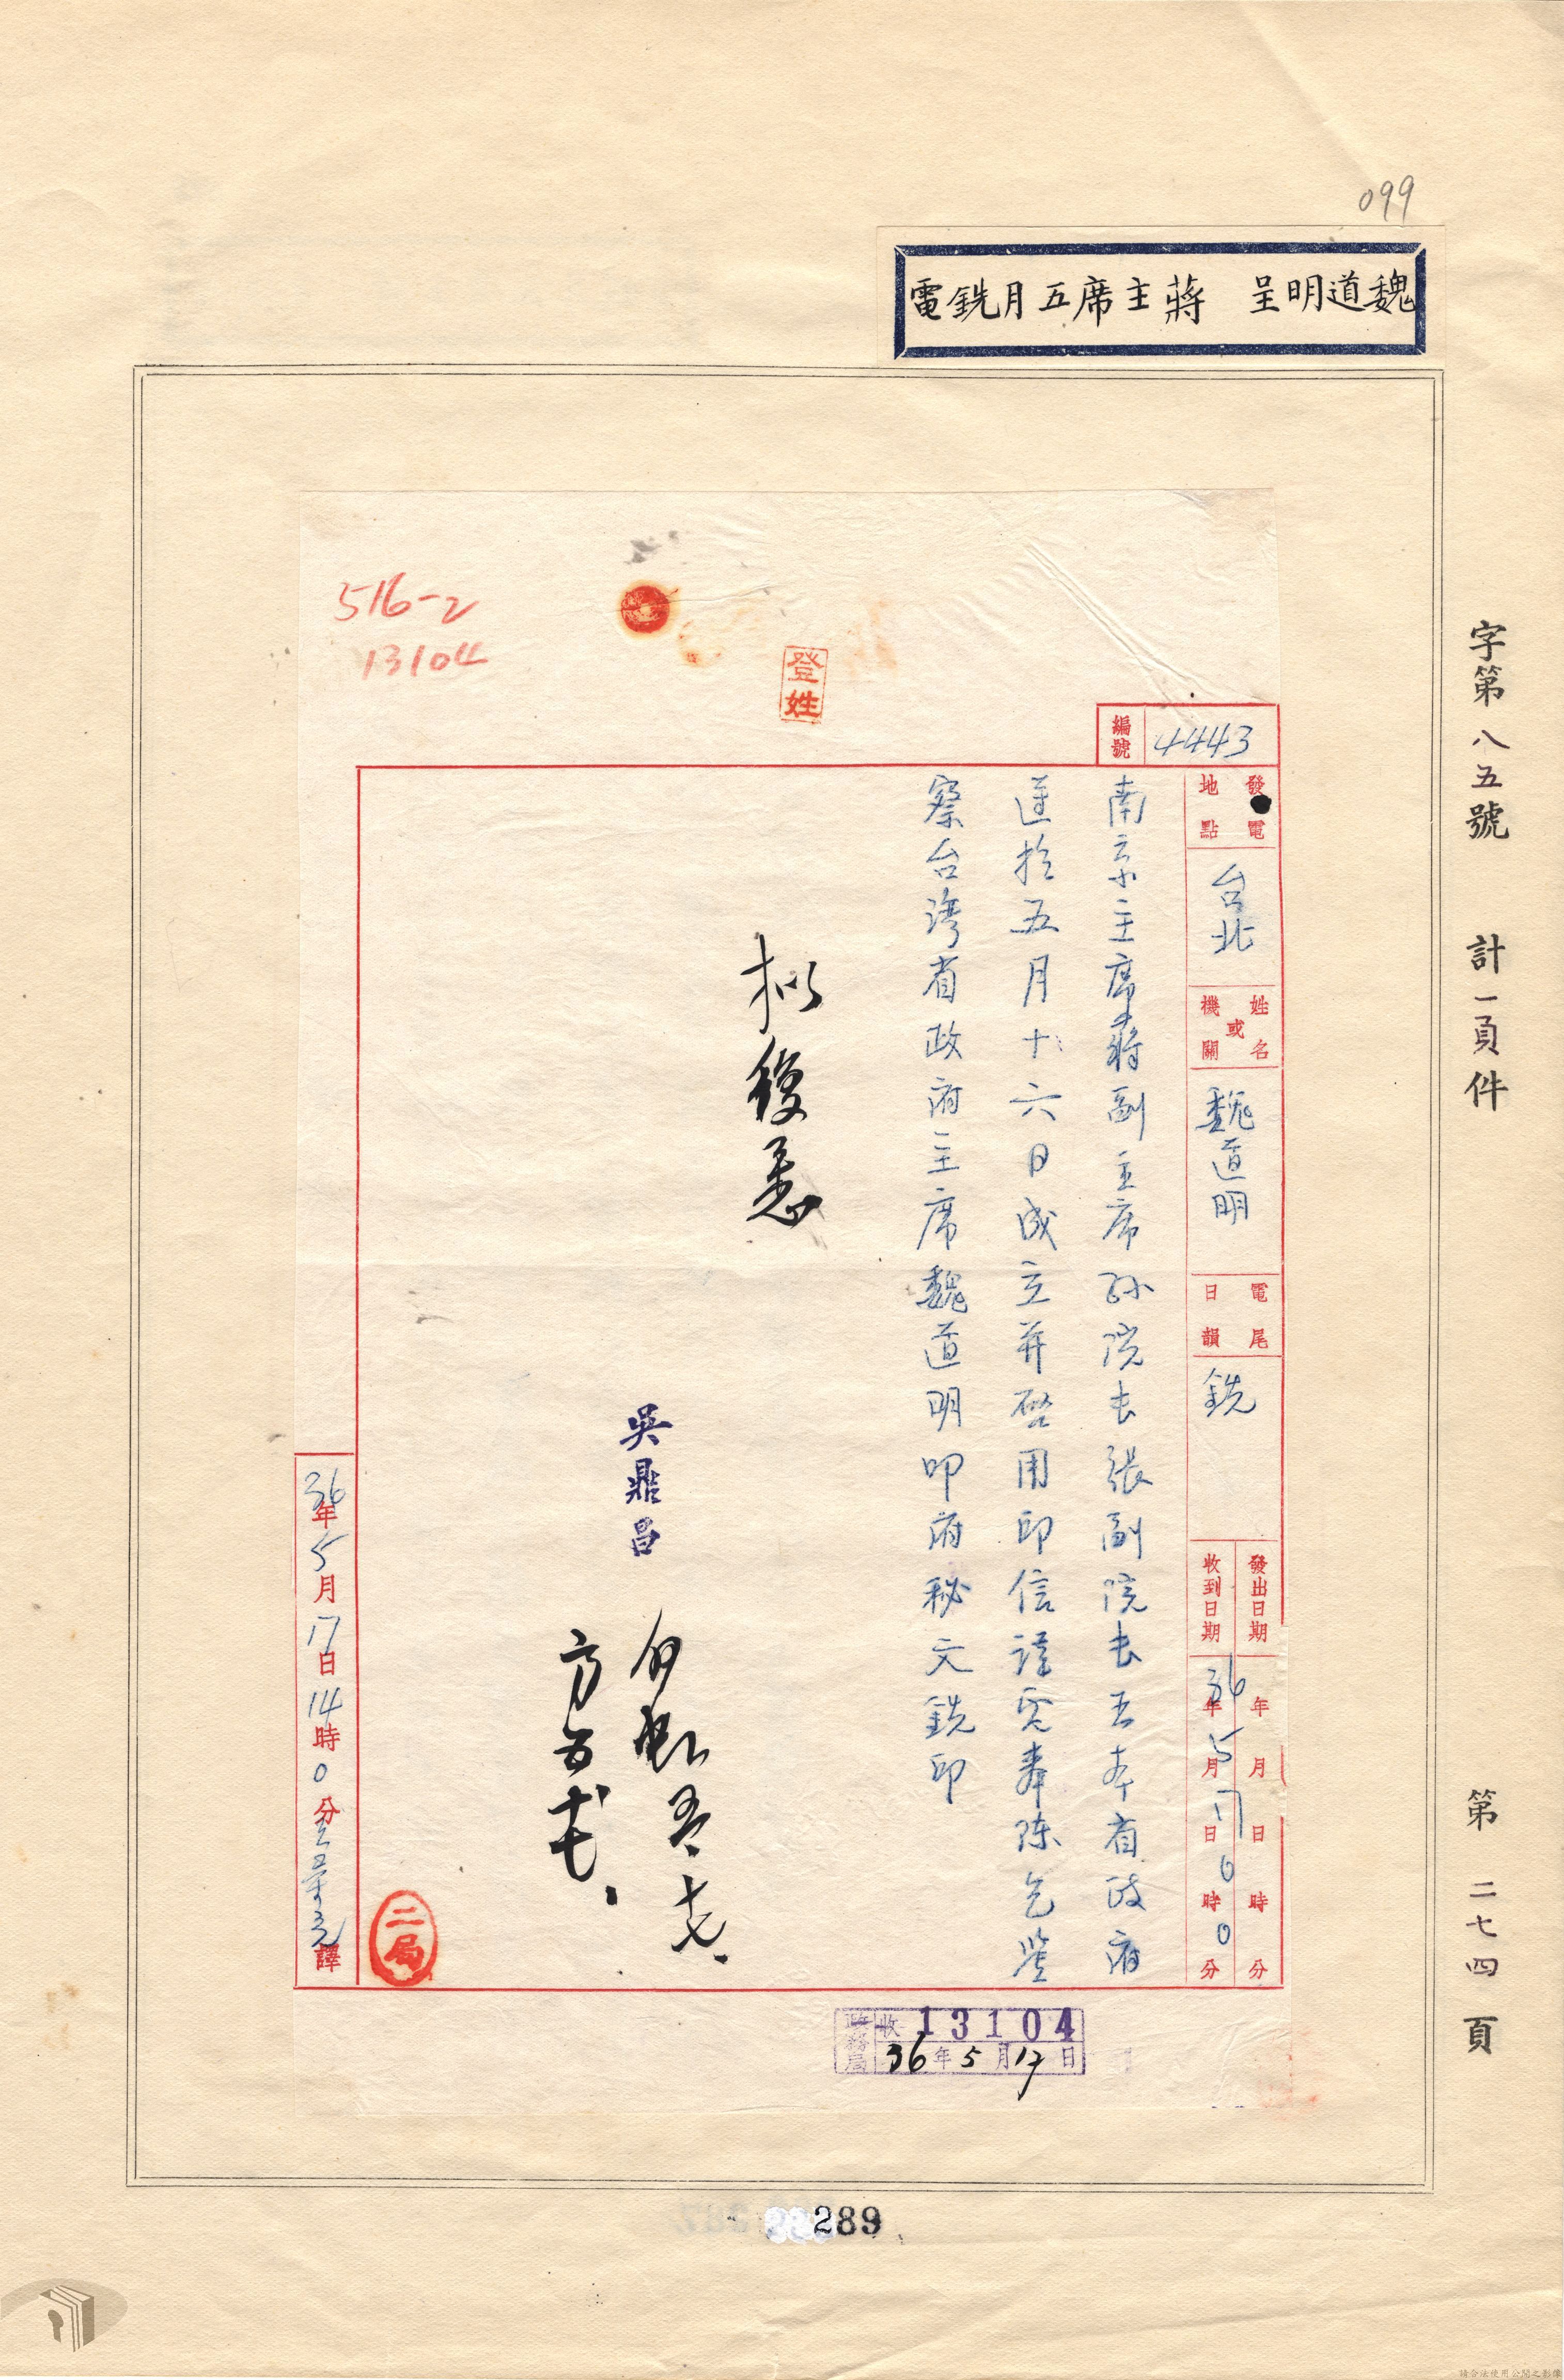 099
魏道明呈　蔣主席五月銑電
字第八五號　計一頁件　第二七四頁
516-2
13104
登姓
編號 4443
發電地點 台北
姓名或機關 魏道明
電尾日韻 銑
發出日期 年 月 日 時 分
收到日期 36年5月17日0時0分
南京主席蔣副主席孫院長張副院長五本省政府
遵於五月十六日成立并啓用印信謹電奉陳乞鑒
察台灣省政府主席魏道明叩府秘文銑印
擬復悉
吳鼎昌
五、十七、
方 五 十七、
二局
36年5月17日14時0分 譯
收 13104
36年5月17日
289
請合法使用公開之影像